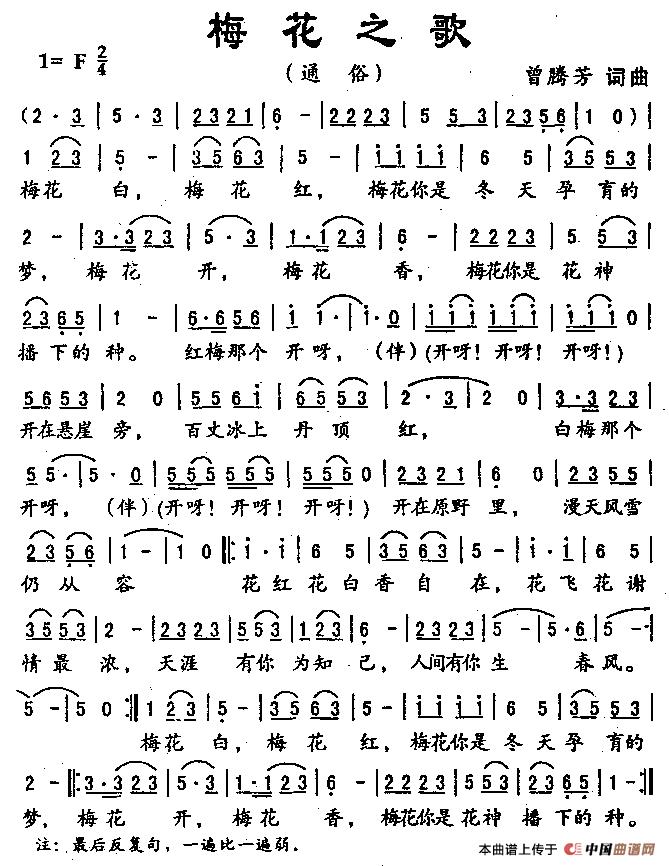 梅花之歌
1= F 2/4
(通俗)
曾腾芳 词曲
(2·3 | 5·3 | 2321 | 6 - | 2223 | 5 3 | 2356 | 1 0 )
1 23 | 5 - | 35 63 | 5 - | i i i i | 6 5 | 3553 |
梅花 白, 梅花 红, 梅花你是 冬天孕育的
2 - | 3·323 | 5·3 | 1·123 | 6 - | 2223 | 5 53 |
梦, 梅花 开, 梅花 香, 梅花你是 花神
2365 | 1 - | 6·656 | i i· | i·0 | i i i i i i | i i 0 |
播下的种。 红梅那个 开呀, (伴)(开呀! 开呀! 开呀!)
5653 | 2 0 | 556i | 6553 | 2·3 | 2 0 | 3·323 |
开在悬崖 旁, 百丈冰上 丹顶 红, 白梅那个
55· | 5·0 | 555555 | 550 | 2321 | 6 0 | 2355 |
开呀, (伴)(开呀! 开呀! 开呀!) 开在原野 里, 漫天风雪
2356 | 1 - | 1 0 ‖: i·i | 6 5 | 3563 | 5 - | i·i | 6 5 |
仍从 容 花红花白香自 在, 花飞花谢
3553 | 2 - | 2323 | 553 | 123 | 6 - | 2223 | 5 - | 5·6 | 5 - |
情最 浓, 天涯 有你 为知 己, 人间有你 生 春风。
5 - | 5 0 :‖ 1 23 | 5 - | 3563 | 5 - | i i i i | 6 5 | 3553 |
梅花 白, 梅花 红, 梅花你是 冬天孕 育的
2 - ‖: 3·323 | 5·3 | 1·123 | 6 - | 2223 | 5 53 | 2365 | 1 - :‖
梦, 梅花 开, 梅花 香, 梅花你是 花神 播 下的 种。
注: 最后反复句, 一遍比一遍弱。
本曲谱上传于 中国曲谱网